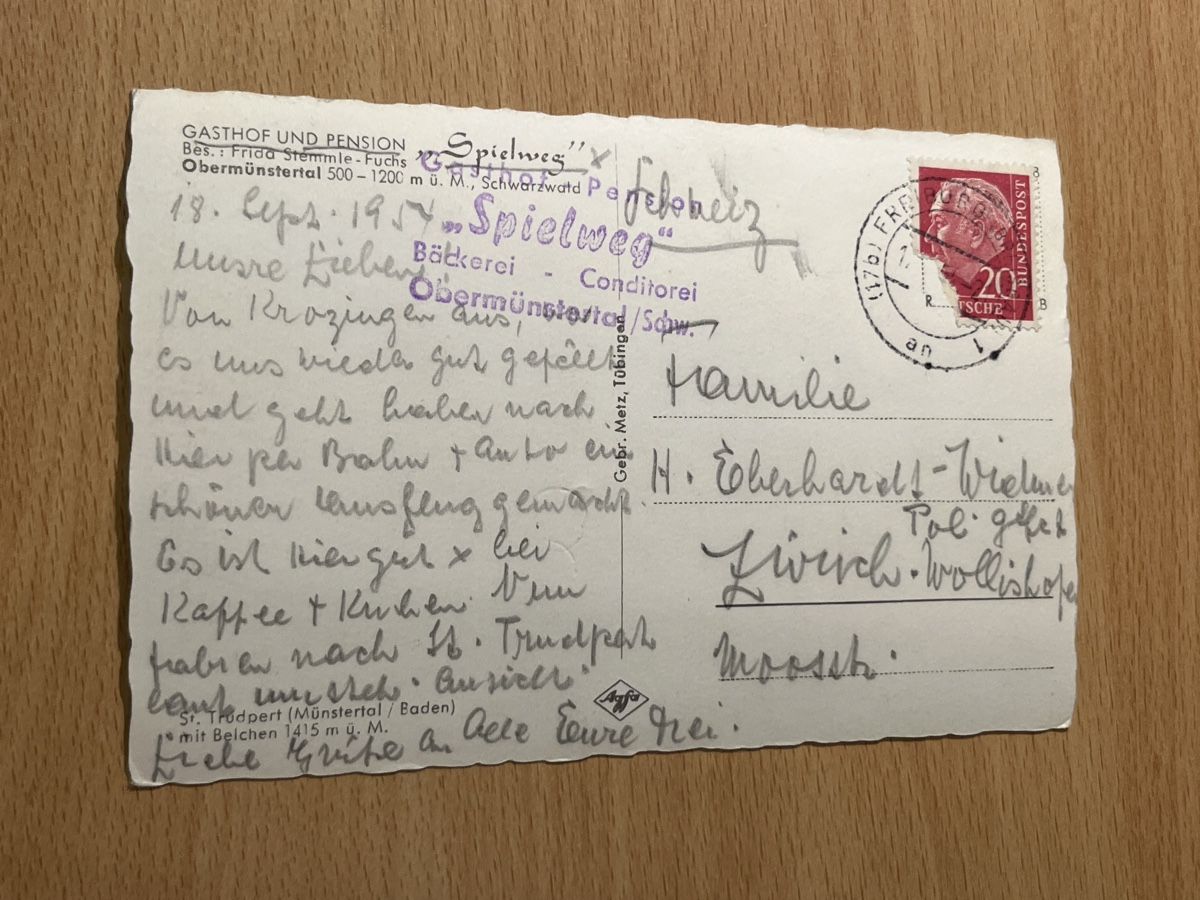 GASTHOF UND PENSION „Spielweg" x
Bes.: Frida Stemmle-Fuchs
Obermünstertal 500 – 1200 m ü. M., Schwarzwald
Gasthof Pension
„Spielweg"
Bäckerei - Conditorei
Obermünstertal/Schw.
18. Sept. 1954
Unsre Lieben!
Von Krozingen aus, wo
es uns wieder gut gefällt
und geht haben nach
hier per Bahn + Auto ein
schönen Ausflug gemacht.
Es ist hier gut x bei
Kaffee + Kuchen. Nun
fahren nach St. Trudpert
laut umsteh. Ansicht.
St. Trudpert (Münstertal / Baden)
mit Belchen 1415 m ü. M.
Liebe Grüße an Alle Eure Drei.
Gebr. Metz, Tübingen
Agfa
Schweiz
Familie
H. Eberhardt-Widmer
Pol. Gefr
Zürich-Wollishofen
Moosstr.
(17b) FREIBURG
an
1
20
BUNDESPOST
TSCHE
R
B